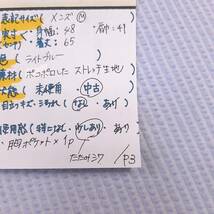 表記サイズ(メンズ Ⓜ)
実寸・身幅:48 ・肩巾:41
・着丈:65
色(ライトブルー
素材(ポコポコした ストレッチ生地
状態( 未使用 ・ 中古)
目立つキズ・汚れ( なし ・ あり
使用感(特になし ・ 少しあり ・ あり
・胸ポケット×1P
たたみ37
/P3